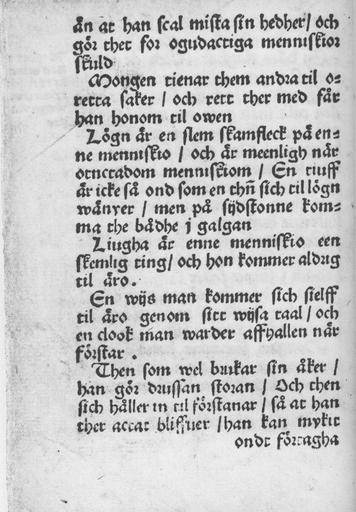 än at han scal mista sin hedher / och
gör thet for ogudactiga menniskior
skuld
Mongen tienar them andra til o-
retta saker / och rett ther med får
han honom til owen
Lögn är en slem skamfleck på en-
ne menniskio / och är meenligh når
otuctadom menniskiom / En tiuff
är icke så ond som en thñ sich til lögn
wänyer / men på sijdstonne kom-
ma the bådhe j galgan
Liugha är enne menniskio een
skemlig ting / och hon kommer aldrig
til äro.
En wijs man kommer sich sielff
til äro genom sitt wijsa taal / och
en clook man warder affhallen når
förstar.
Then som wel brukar sin åker /
han gör drussan storan / Och then
sich håller in til förstanar / så at han
ther accat bliffuer / han kan mykit
ondt förtagha